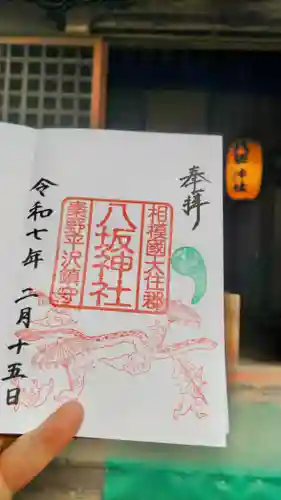 奉拝
相模國大住郡
八坂神社
秦野平沢鎮守
令和七年 二月十五日
八坂神社